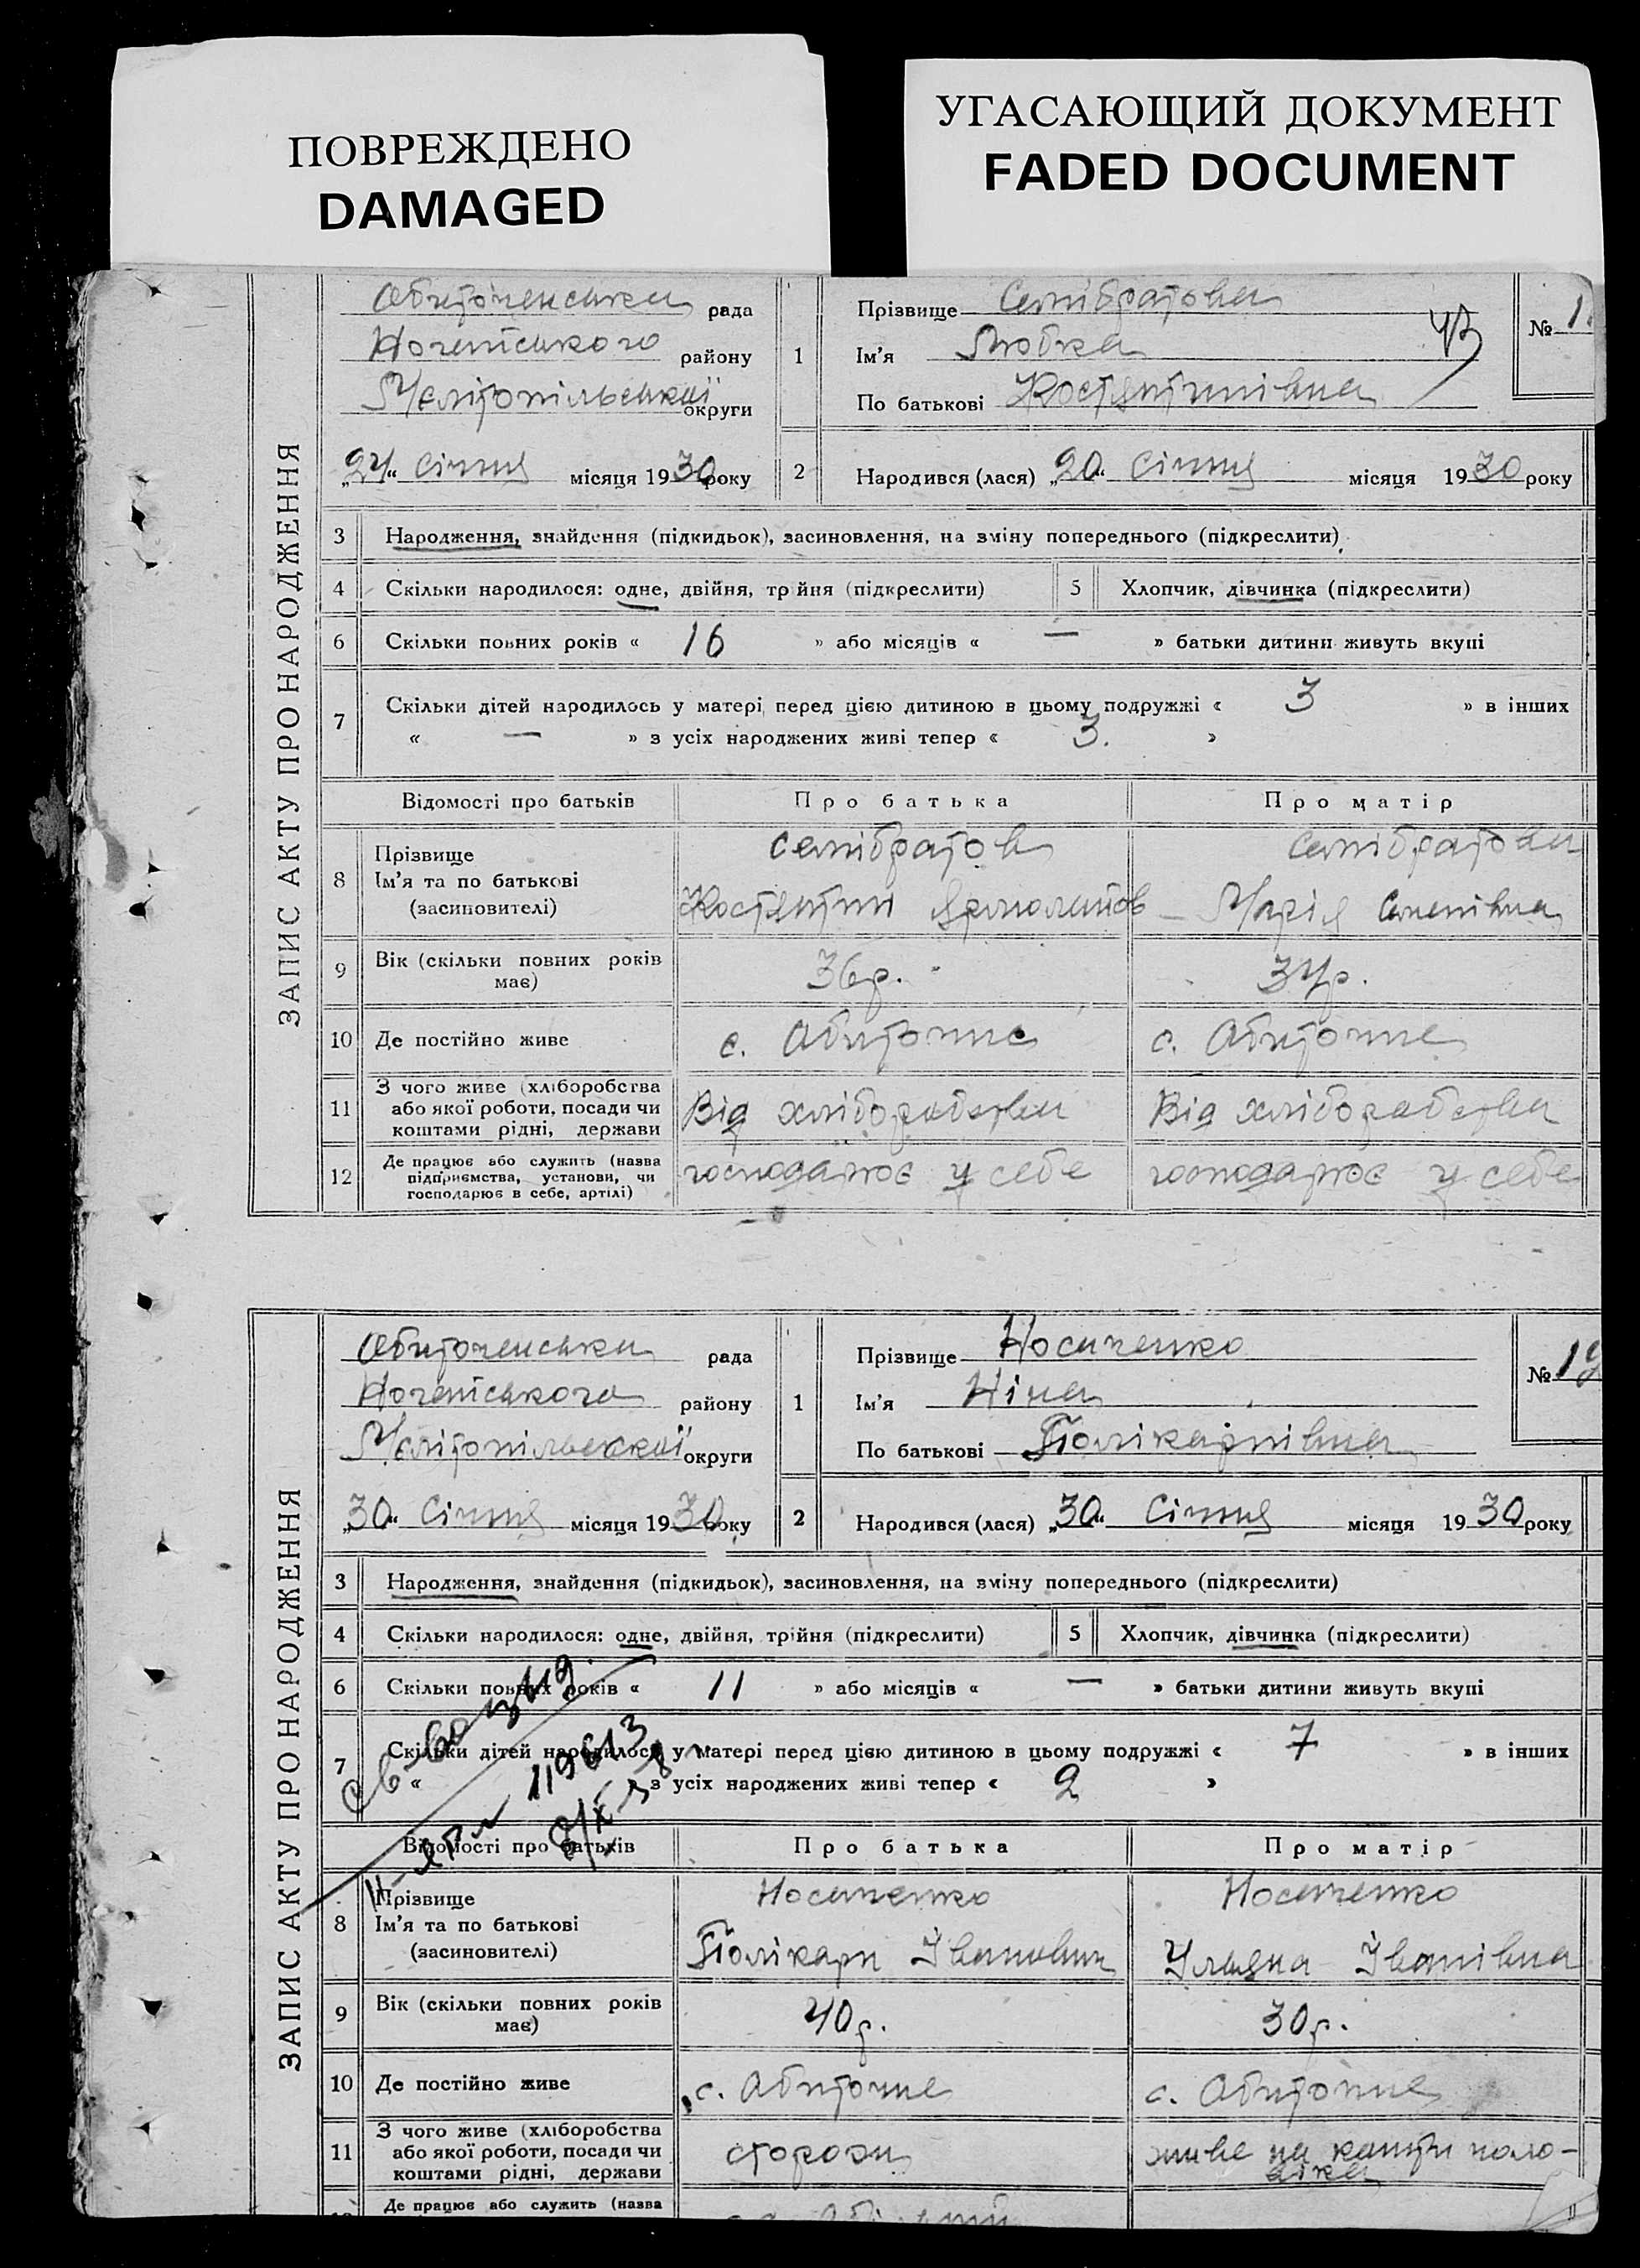 ПОВРЕЖДЕНО
DAMAGED
УГАСАЮЩИЙ ДОКУМЕНТ
FADED DOCUMENT
ЗАПИС АКТУ ПРО НАРОДЖЕННЯ
Обиточенська рада
Ногайського району
Мелітопільської округи
„24“ Січня місяця 1930 року
1
Прізвище Семібратова
Ім'я Любка
По батькові Костянтинівна
№ 1
2
Народився (лася) „20“ Січня місяця 1930 року
3 Народження, знайдення (підкидьок), засиновлення, на зміну попереднього (підкреслити)
4 Скільки народилося: одне, двійня, трійня (підкреслити)
5 Хлопчик, дівчинка (підкреслити)
6 Скільки повних років « 16 » або місяців « — » батьки дитини живуть вкупі
7 Скільки дітей народилось у матері перед цією дитиною в цьому подружжі « 3 » в інших
« — » з усіх народжених живі тепер « 3. »
Відомості про батьків Про батька Про матір
8 Прізвище Семібратов Семібратова
Ім'я та по батькові Костянтин Марія Семенівна
(засиновителі)
9 Вік (скільки повних років має) 36 р. 34 р.
10 Де постійно живе с. Обиточне с. Обиточне
11 З чого живе (хліборобства
або якої роботи, посади чи Від хліборобства Від хліборобства
коштами рідні, держави
12 Де працює або служить (назва
підприємства, установи, чи господарює у себе господарює у себе
господарює в себе, артілі)
ЗАПИС АКТУ ПРО НАРОДЖЕННЯ
Обиточенська рада
Ногайського району
Мелітопільської округи
„30“ Січня місяця 1930 року
1
Прізвище Носаченко
Ім'я Ніна
По батькові Полікарпівна
№ 12
2
Народився (лася) „30“ Січня місяця 1930 року
3 Народження, знайдення (підкидьок), засиновлення, на зміну попереднього (підкреслити)
4 Скільки народилося: одне, двійня, трійня (підкреслити)
5 Хлопчик, дівчинка (підкреслити)
6 Скільки повних років « 11 » або місяців « — » батьки дитини живуть вкупі
7 Скільки дітей народилось у матері перед цією дитиною в цьому подружжі « 7 » в інших
« з усіх народжених живі тепер « 2 »
119613
Відомості про батьків Про батька Про матір
8 Прізвище Носаченко Носаченко
Ім'я та по батькові Полікарп Іванович Уляна Іванівна
(засиновителі)
9 Вік (скільки повних років має) 40 р. 30 р.
10 Де постійно живе с. Обиточне с. Обиточне
11 З чого живе (хліборобства
або якої роботи, посади чи сторожи живе на кошти чоло-
коштами рідні, держави віка
Де працює або служить (назва